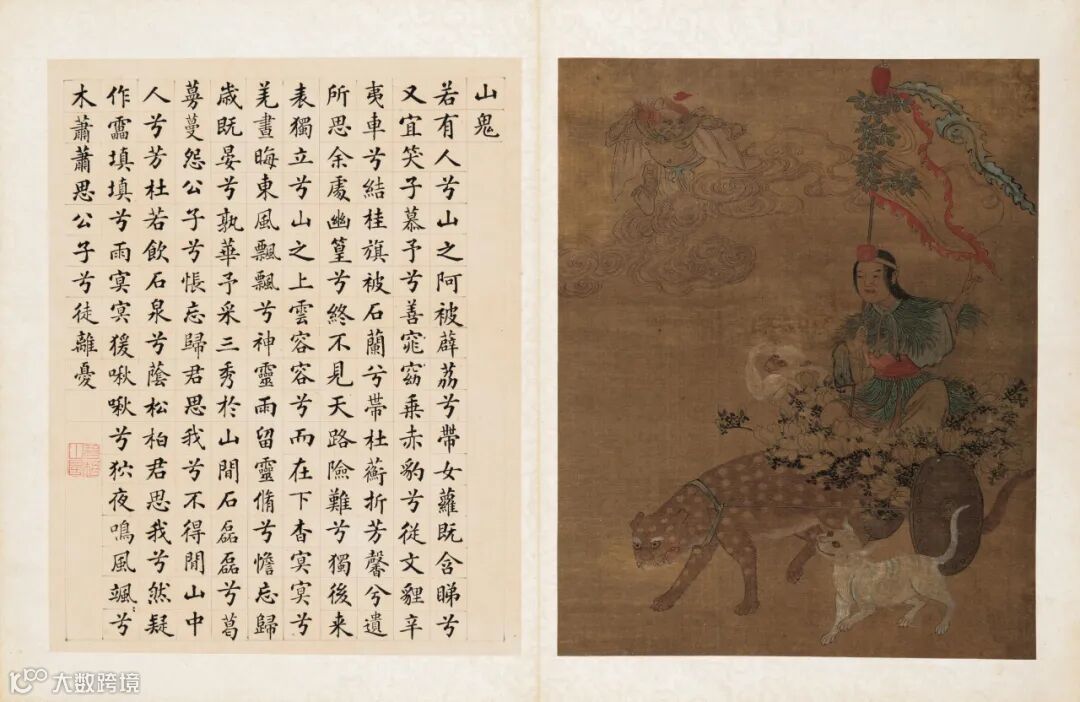 山鬼
若有人兮山之阿被薜荔兮帶女蘿既含睇兮
又宜笑子慕予兮善窕窈乘赤豹兮從文貍辛
夷車兮結桂旗被石蘭兮帶杜蘅折芳馨兮遺
所思余處幽篁兮終不見天路險難兮獨後来
表獨立兮山之上雲容容兮而在下杳冥冥兮
羌晝晦東風飄飄兮神靈雨留靈脩兮憺忘歸
歲既晏兮孰華予采三秀於山間石磊磊兮葛
蔓蔓怨公子兮悵忘歸君思我兮不得閒山中
人兮芳杜若飲石泉兮蔭松柏君思我兮然疑
作靁填填兮雨冥冥猨啾啾兮狖夜鳴風颯〻兮
木蕭蕭思公子兮徒離憂
大数跨境